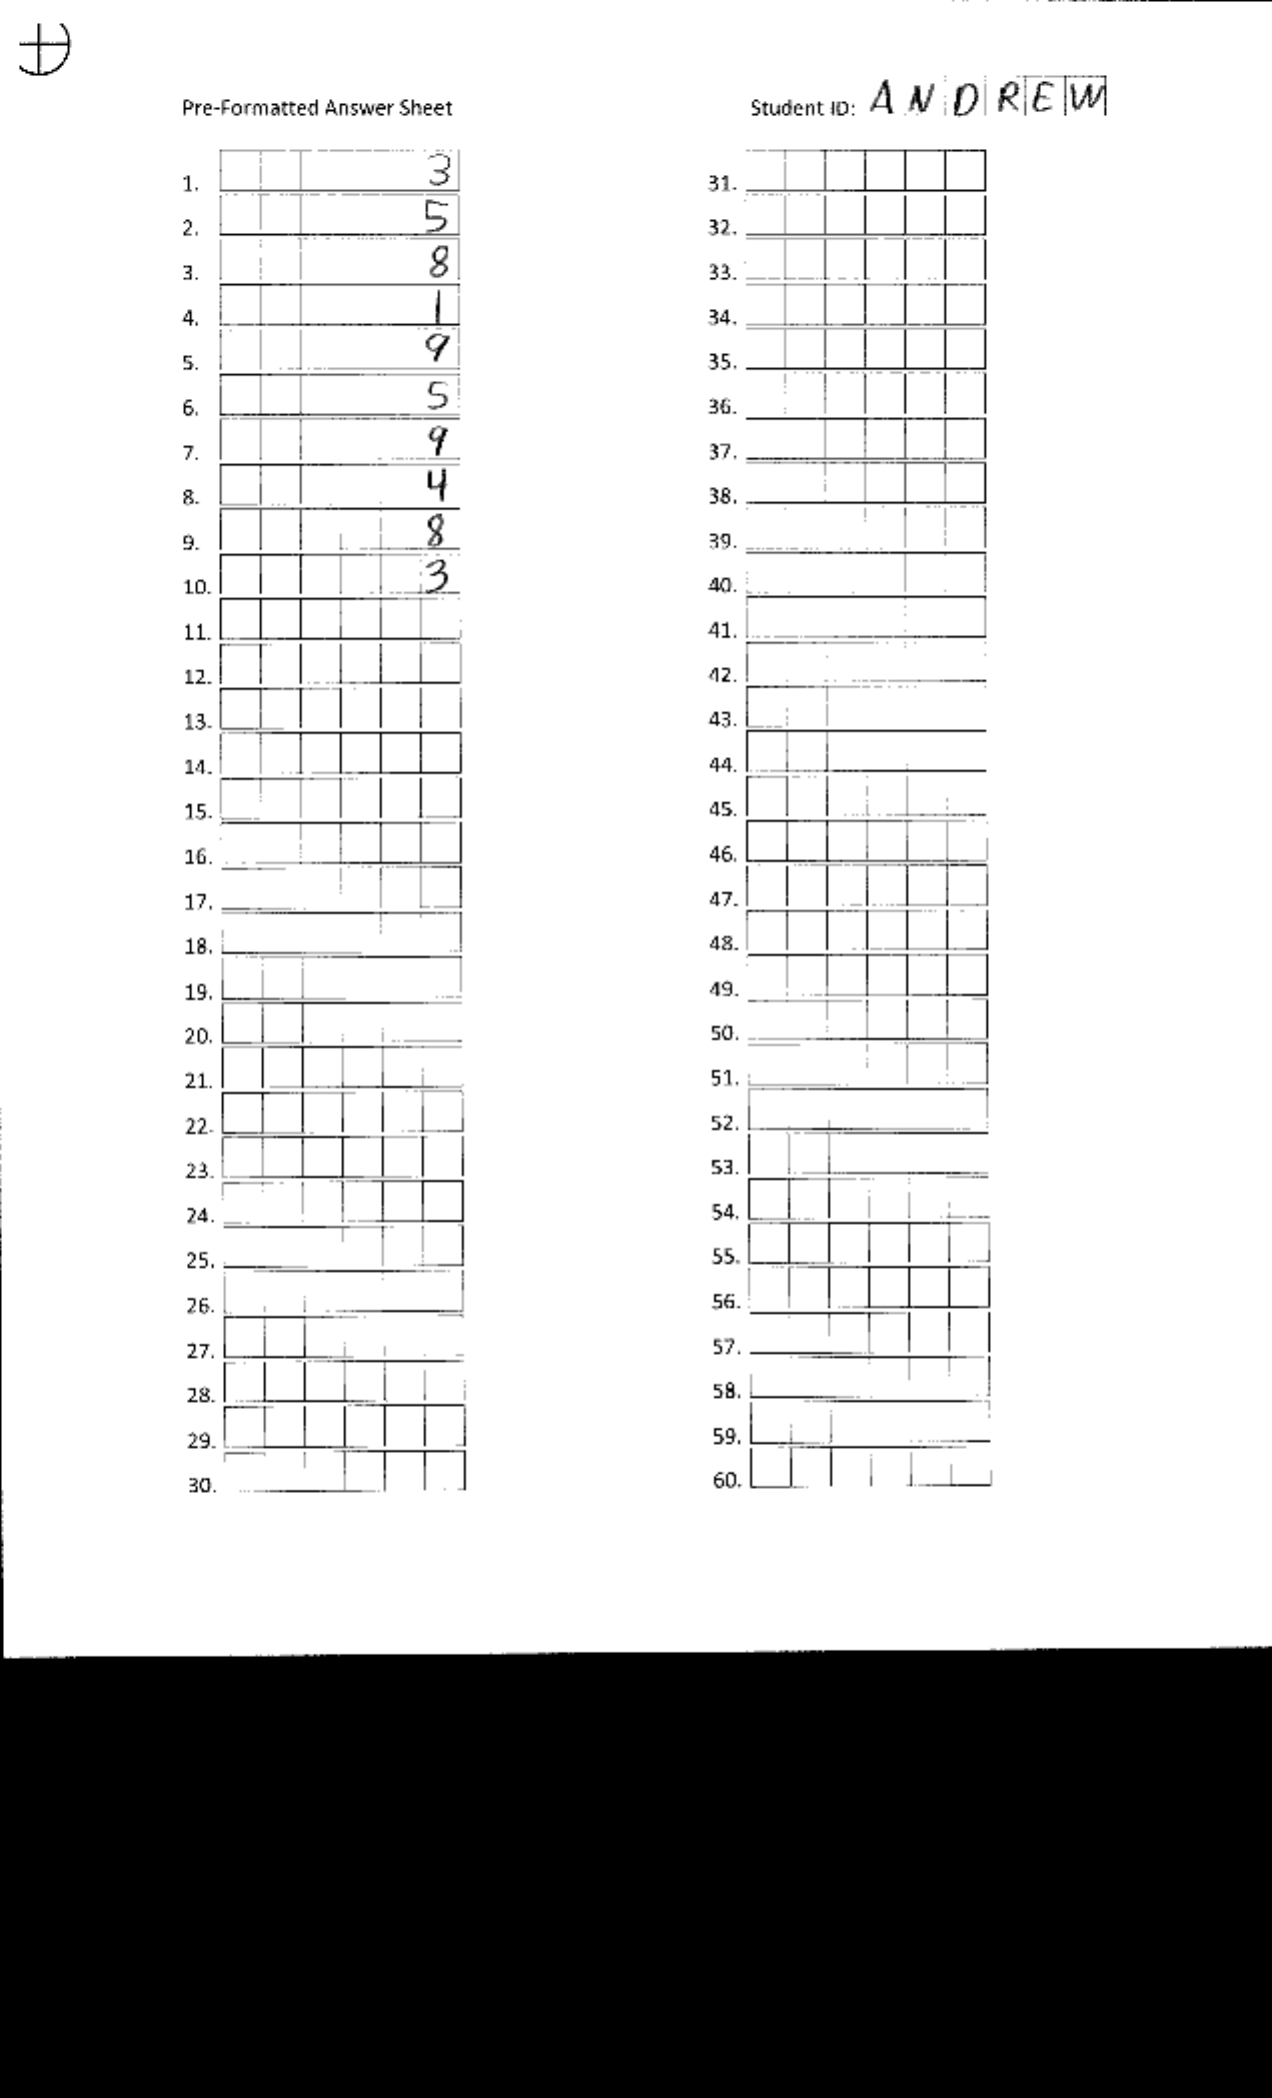 Pre-Formatted Answer Sheet
Student ID: ANDREW
1. 3
2. 5
3. 8
4. 1
5. 9
6. 5
7. 9
8. 4
9. 8
10. 3
11.
12.
13.
14.
15.
16.
17.
18.
19.
20.
21.
22.
23.
24.
25.
26.
27.
28.
29.
30.
31.
32.
33.
34.
35.
36.
37.
38.
39.
40.
41.
42.
43.
44.
45.
46.
47.
48.
49.
50.
51.
52.
53.
54.
55.
56.
57.
58.
59.
60.